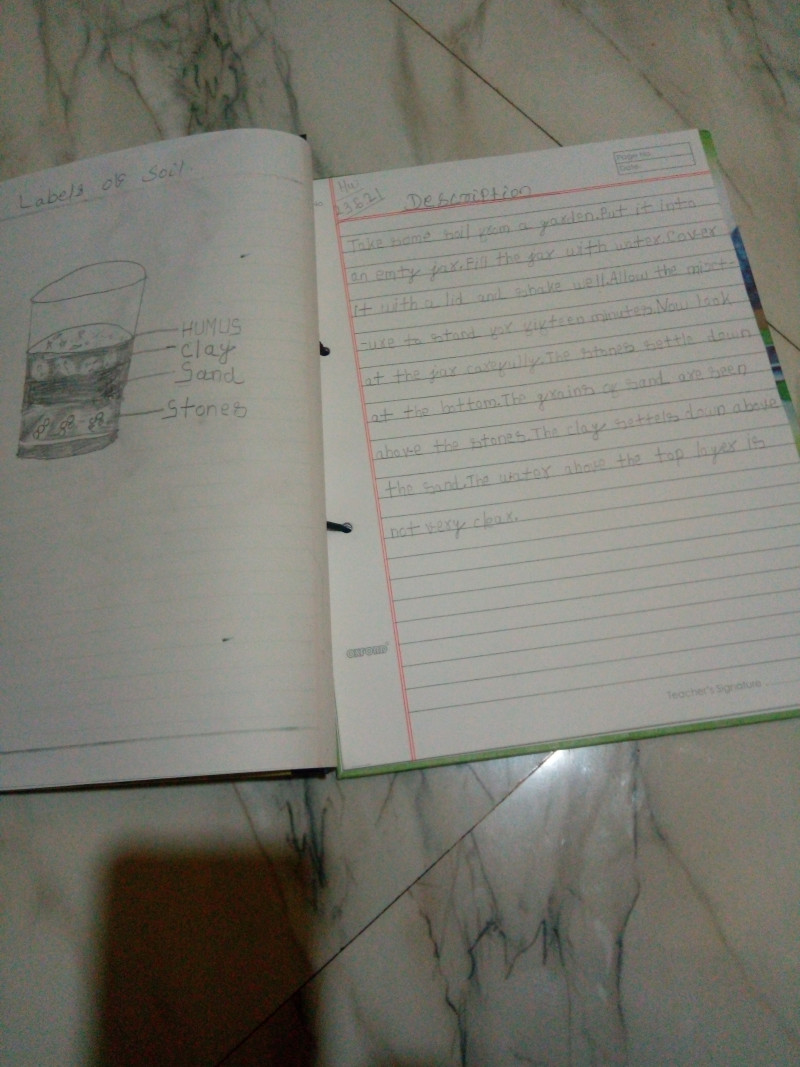 Labels of Soil
HUMUS
clay
Sand
Stones
Page No.
Date:
Hw
23.6.21
Description
Take some soil from a garden.Put it into
an emty jar.Fill the jar with water.Cover
it with a lid and shake well.Allow the mixt-
-ure to stand for fifteen minutes.Now look
at the jar carefully.The stones settle down
at the bottom.The grains of sand are seen
above the stones.The clay settels down above
the sand.The water above the top layer is
not very clear.
OXFORD
Teacher's Signature